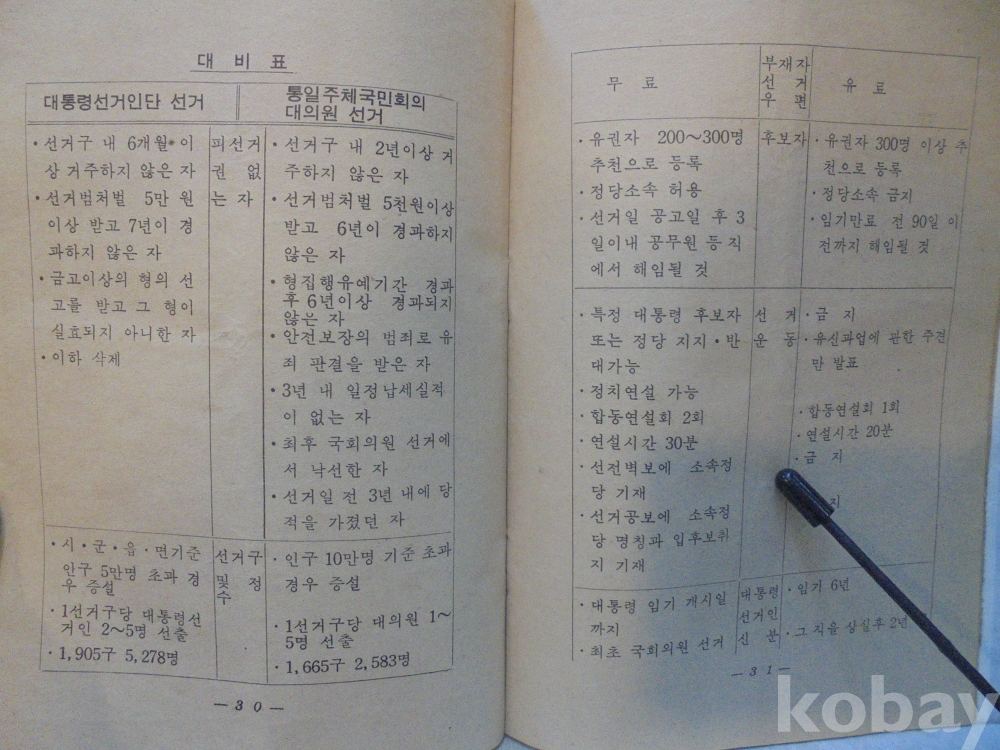 대 비 표
대통령선거인단 선거
통일주체국민회의
대의원 선거
· 선거구 내 6개월 이
상 거주하지 않은 자
· 선거범처벌 5만 원
이상 받고 7년이 경
과하지 않은 자
· 금고이상의 형의 선
고를 받고 그 형이
실효되지 아니한 자
· 이하 삭제
피선거
권 없
는 자
· 선거구 내 2년이상 거
주하지 않은 자
· 선거범처벌 5천원이상
받고 6년이 경과하지
않은 자
· 형집행유예기간 경과
후 6년이상 경과되지
않은 자
· 안전보장의 범죄로 유
죄 판결을 받은 자
· 3년 내 일정납세실적
이 없는 자
· 최후 국회의원 선거에
서 낙선한 자
· 선거일 전 3년 내에 당
적을 가졌던 자
· 시·군·읍·면기준
인구 5만명 초과 경
우 증설
· 1선거구당 대통령선
거인 2~5명 선출
· 1,905구 5,278명
선거구
및 정
수
· 인구 10만명 기준 초과
경우 증설
· 1선거구당 대의원 1~
5명 선출
· 1,665구 2,583명
— 3 0 —
무 료
부재자
선 거
우 편
유 료
· 유권자 200~300명
추천으로 등록
· 정당소속 허용
· 선거일 공고일 후 3
일이내 공무원 등직
에서 해임될 것
후보자
· 유권자 300명 이상 추
천으로 등록
· 정당소속 금지
· 임기만료 전 90일 이
전까지 해임될 것
· 특정 대통령 후보자
또는 정당 지지·반
대가능
· 정치연설 가능
· 합동연설회 2회
· 연설시간 30분
· 선전벽보에 소속정
당 기재
· 선거공보에 소속정
당 명칭과 입후보취
지 기재
선 거
운 동
· 금 지
· 유신과업에 관한 주견
만 발표
· 합동연설회 1회
· 연설시간 20분
· 금 지
지
· 대통령 임기 개시일
까지
· 최초 국회의원 선거
대통령
선거인
신 분
· 임기 6년
· 그 직을 상실후 2년
— 3 1 —
kobay